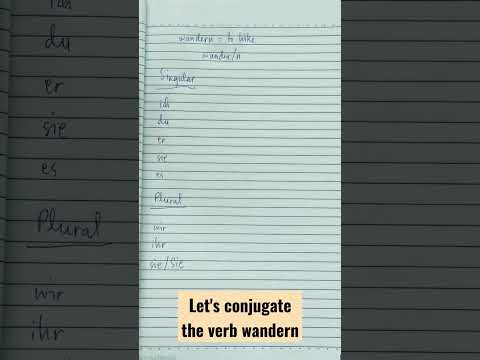 wandern = to hike
wander/n
Singular
ich
du
er
sie
es
Plural
wir
ihr
sie/Sie
Let's conjugate
the verb wandern
ich
du
er
sie
es
Plural
wir
ihr